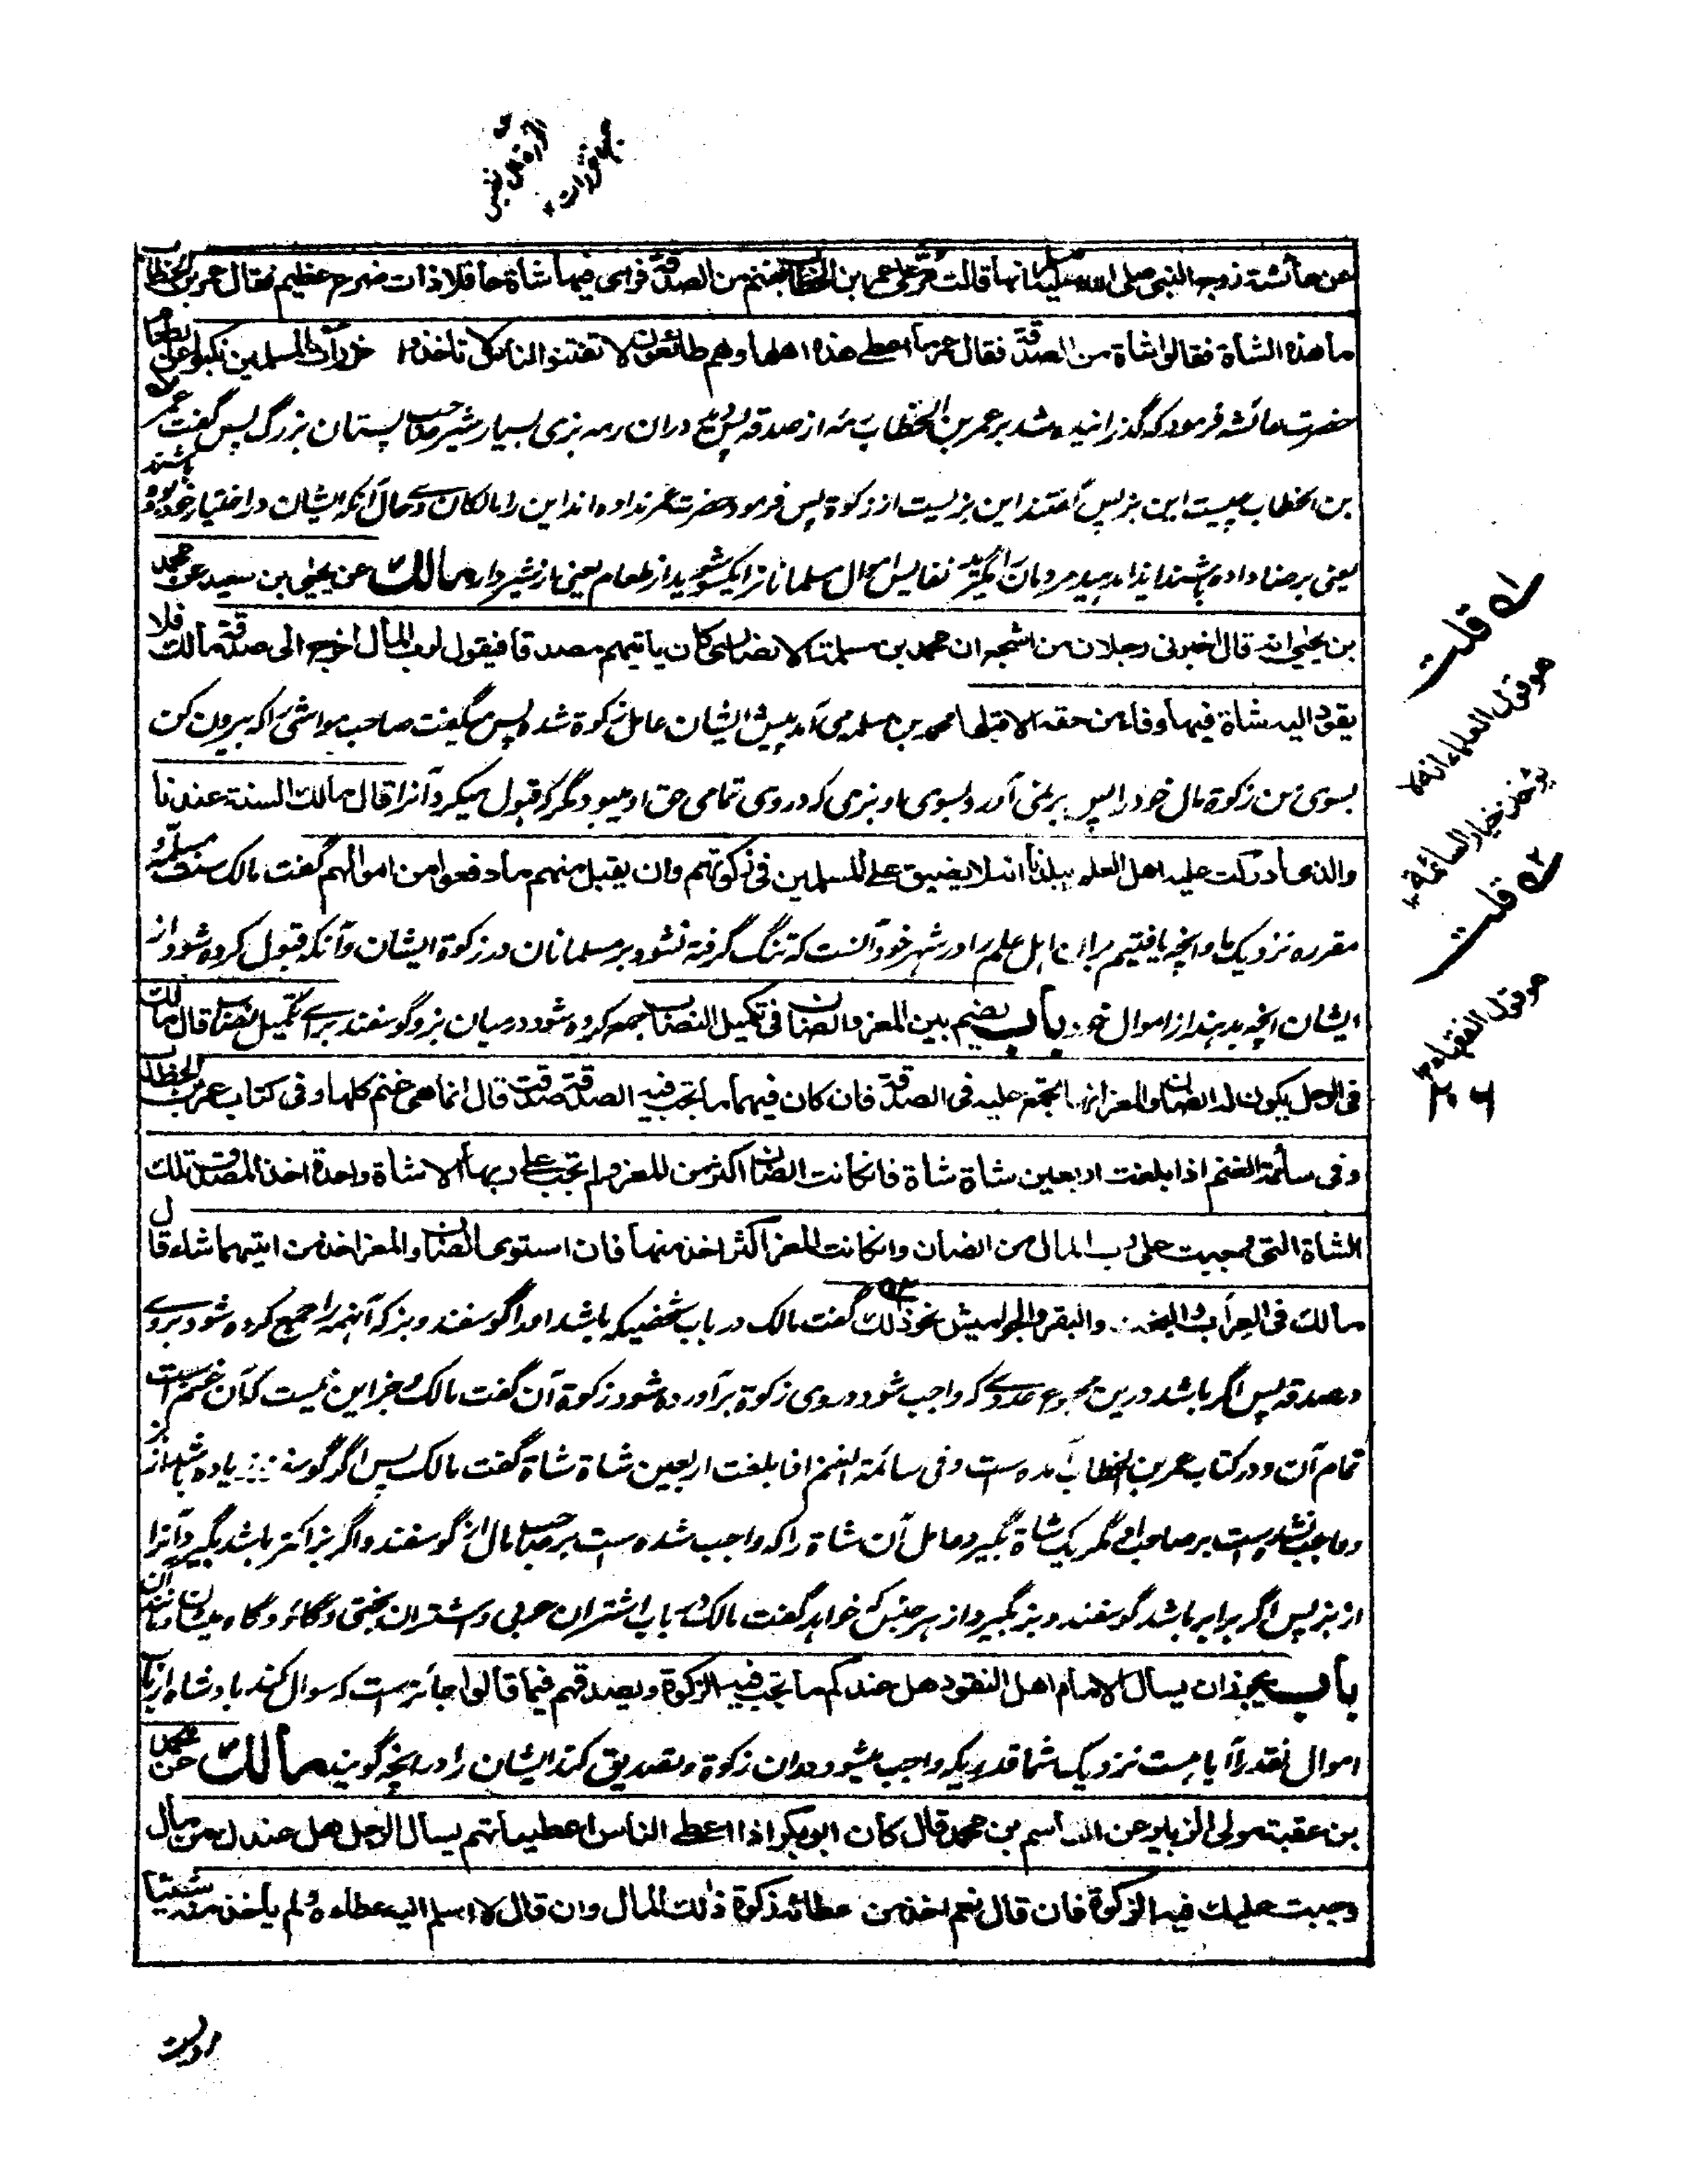 عن عائشة زوج النبي صلى الله عليه وسلم انها قالت مر على عمر بن الخطاب بغنم من الصدقة فراى فيها شاة حافلا ذات ضرع عظيم فقال عمر بن الخطاب
ما هذه الشاة فقالوا شاة من الصدقة فقال عمر ما اعطى هذه اهلها وهم طائعون لا تفتنوا الناس لا تاخذوا حزرات المسلمين نكبوا عن الطعام
حضرت عائشه فرمود که گذرانیده شد بر عمر بن الخطاب رمه از صدقه پس دید دران رمه بزی بسیار شیر صاحب پستان بزرگ پس گفت عمر
بن الخطاب چیست این بز پس گفتند این بزیست از زکوة پس فرمود حضرت عمر نداده اند این را مالکان وی حال آنکه ایشان در اختیار خود بوده باشند
یعنی برضا داده باشند ایذا مدهید مردمان را مگیرید نفایس اموال مسلمانانرا یکسو شوید از طعام یعنی از شیردار مالك عن يحيى بن سعيد عن محمد
بن يحيى انه قال اخبرنى رجلان من اشجع ان محمد بن مسلمة الانصارى كان ياتيهم مصدقا فيقول لرب المال اخرج الى صدقة مالك فلا
يقود اليه شاة فيها وفاء من حقه الا قبلها محمد بن مسلمه می آمد پیش ایشان عامل زکوة شده پس میگفت صاحب مواشی را که بیرون کن
بسوی من زکوة مال خود را پس بر نمی آورد بسوی او بزی که در وی تمامی حق او میبود مگر که قبول میکرد آنرا قال مالك السنة عندنا
والذى ادركت عليه اهل العلم ببلدنا انه لا يضيق على المسلمين فى زكوتهم وان يقبل منهم ما دفعوا من اموالهم گفت مالک سنت مسلمه و
مقرره نزدیک ما و آنچه یافتیم بران اهل علم را در شهر خود آنست که تنگ گرفته نشود بر مسلمانان در زکوة ایشان و آنکه قبول کرده شود از
ایشان آنچه بدهند از اموال خود باب يضم بين المعز والضان فى تكميل النصاب جمع کرده شود درمیان بز و گوسفند برای تکمیل نصاب قال مالك
فى الرجل يكون له الضان والمعز انها تجمع عليه فى الصدقة فان كان فيهما ما تجب فيه الصدقة صدقت قال انما هى غنم كلها وفى كتاب عمر بن الخطاب
وفى سائمة الغنم اذا بلغت اربعين شاة شاة فان كانت الضان اكثر من المعز ولم تجب على ربها الا شاة واحدة اخذ المصدق تلك
الشاة التى وجبت على رب المال من الضان وان كانت المعز اكثر اخذ منها فان استوى الضان والمعز اخذ من ايتهما شاء قال
مالك فى العراب والبخت والبقر والجواميس نحو ذلك گفت مالک در باب شخصیکه باشد او را گوسفند و بز که آنهمه را جمع کرده شود بروی
در صدقه پس اگر باشد درین مجموع عددی که واجب شود در وی زکوة برآورده شود زکوة آن گفت مالک جز این نیست که آن غنم است
تمام آن و در کتاب عمر بن الخطاب آمده است وفى سائمة الغنم اذا بلغت اربعين شاة شاة گفت مالک پس اگر گوسفند زیاده باشد از بز
و واجب نشده است بر صاحب او مگر یک شاة بگیرد عامل آن شاة را که واجب شده است بر صاحب مال از گوسفند و اگر بز اکثر باشد بگیرد آنرا
از بز پس اگر برابر باشد گوسفند و بز بگیرد از هر جنس که خواهد گفت مالک در باب اشتران عربی و اشتران بختی و گاو و گاومیشان مانند آن
باب يجوز ان يسال الامام اهل النقود هل عندكم ما تجب فيه الزكوة ويصدقهم فيما قالوا جائز است که سوال کند بادشاه ارباب
اموال نقد را آیا هست نزدیک شما قدریکه واجب میشود دران زکوة و تصدیق کند ایشان را در آنچه گویند مالك عن محمد
بن عقبة مولى الزبير عن القاسم بن محمد قال كان ابو بكر اذا اعطى الناس اعطياتهم يسال الرجل هل عندك من مال
وجبت عليك فيه الزكوة فان قال نعم اخذ من عطائه زكوة ذلك المال وان قال لا اسلم اليه عطاءه ولم ياخذ منه شيئا
له قلت
هو قول العلماء انه لا
يوخذ خيار السائمة
له قلت
هو قول الفقهاء